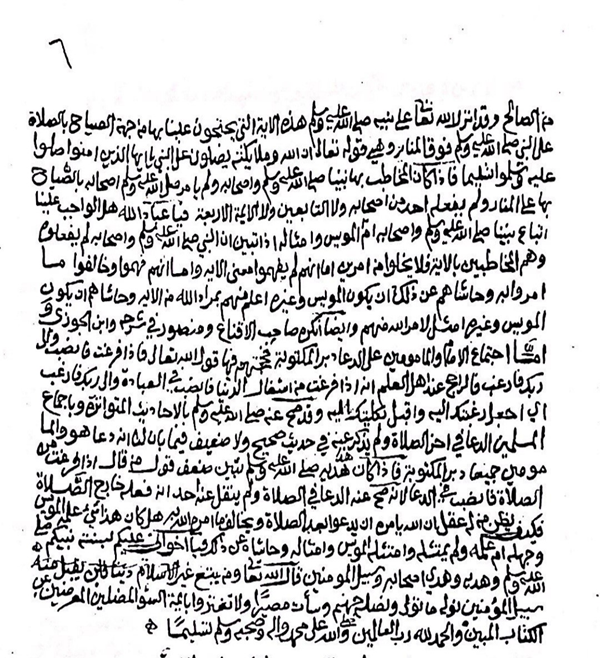 ٦
من الصالح وقد انزل الله تعا على نبيه صلى الله عليه وسلم هذه الاية التي يحتجون علينا بها من جهة الصياح بالصلاة
على النبي صلى الله عليه وسلم فوق المنابر وهي قوله تعالى ان الله وملايكته يصلون على النبي يا ايها الذين امنوا صلوا
عليه وسلموا تسليما فاذا كان المخاطب بها نبينا صلى الله عليه وسلم واصحابه ولم يامر صلى الله عليه وسلم اصحابه بالصياح
بها على المنابر ولم يفعله احد من اصحابه ولا التابعين ولا الايمة الاربعة فيا عباد الله هل الواجب علينا
اتباع نبينا صلى الله عليه وسلم واصحابه ام المويس وامثاله اذا تبين ان النبي صلى الله عليه وسلم واصحابه لم يفعلوه
وهم المخاطبين بالاية فلا يخلوا من امرين اما انهم لم يفهموا معنى الاية واما انهم فهموا وخالفوا ما
امروا به وحاشاهم عن ذلك ان يكون المويس وغيره اعلم منهم بمراد الله من الاية وحاشاهم ان يكون
المويس وغيره امتثل لامر الله منهم وايضا انكره صاحب الاقناع ومنصور في شرحه وابن الجوزي و
اما اجتماع الامام والمامومين على الدعا دبر المكتوبة فحجتهم فيها قول الله تعالى فاذا فرغت فانصب والى
ربك فارغب فالراجح عند اهل العلم انه اذا فرغت من اشغال الدنيا فانصب في العبادة والى ربك فارغب
اي اجعل رغبتك اليه واقبل بكليتك اليه وقد صح عنه صلى الله عليه وسلم بالاحاديث المتواترة وباجماع
المسلمين الدعا في اخر الصلاة ولم يذكر عنه في حديث صحيح ولا ضعيف فيما بان لنا انه دعا هو والما
مومين جميعا دبر المكتوبة فاذا كان هذا هديه صلى الله عليه وسلم تبين ضعف قول من قال اذا فرغت من
الصلاة فانصب في الدعا لانه صح عنه الدعا في الصلاة ولم ينقل عنه احد انه فعله خارج الصلاة
فكيف يظن من له عقل ان الله يامره ان يدعوا بعد الصلاة ويخالف ما امره الله به هل كان هذا
وجهله ام علمه ولم يمتثله وامتثله المويس وامثاله وحاشاه عن ذلك فيا اخواني عليكم بسنة نبيكم صلى
الله عليه وسلم وهديه وهدي اصحابه وسبيل المومنين قال الله تعا ومن يبتغ غير الاسلام دينا فلن يقبل منه
سبيل المؤمنين نوله ما تولى ونصله جهنم وسات مصيرا ولا تغتروا بايمة السوء المضلين المعرضين عن
الكتاب المبين والحمد لله رب العالمين وصلى الله على محمد واله وصحبه وسلم تسليما